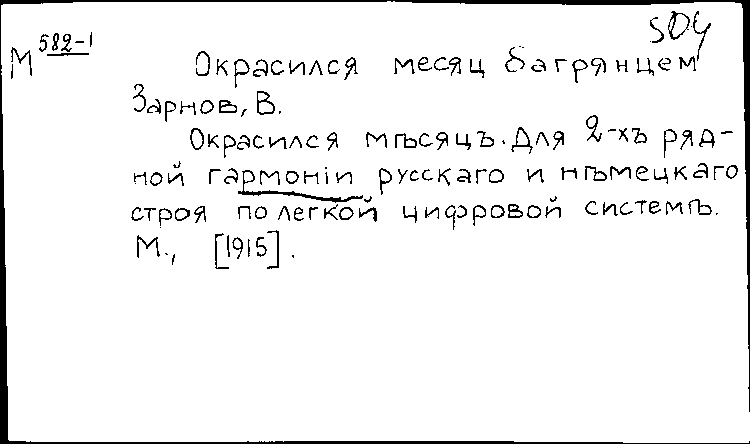 М 582-1
504
Окрасился месяц багрянцем
Зарнов, В.
Окрасился мѣсяцъ. Для 2-хъ ряд-
ной гармоніи русскаго и нѣмецкаго
строя по легкой цифровой системѣ.
М., [1915].